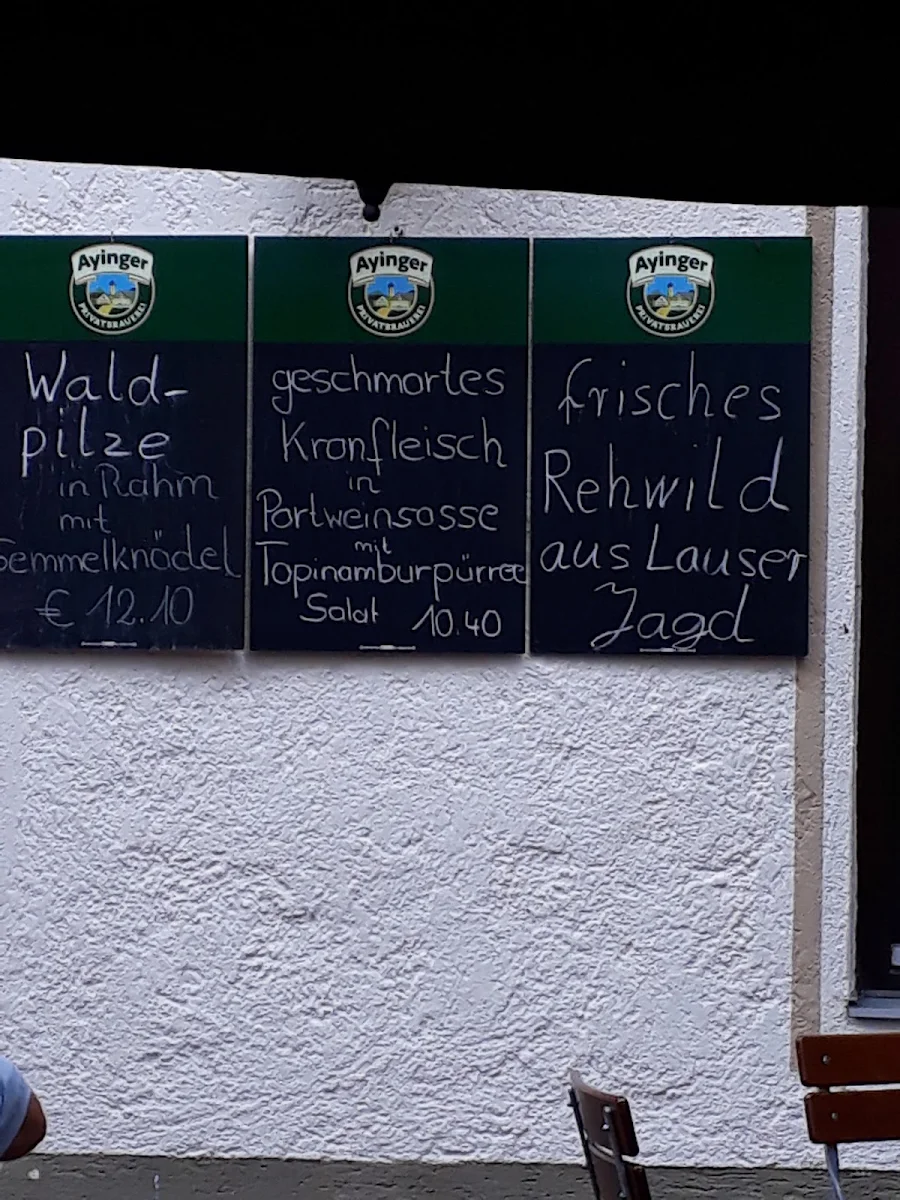 Ayinger
PRIVATBRAUEREI
Wald-
pilze
in Rahm
mit
Semmelknödel
€ 12.10
Ayinger
PRIVATBRAUEREI
geschmortes
Kronfleisch
in
Portweinsosse
mit
Topinamburpürree
Salat 10.40
Ayinger
PRIVATBRAUEREI
frisches
Rehwild
aus Lauser
Jagd